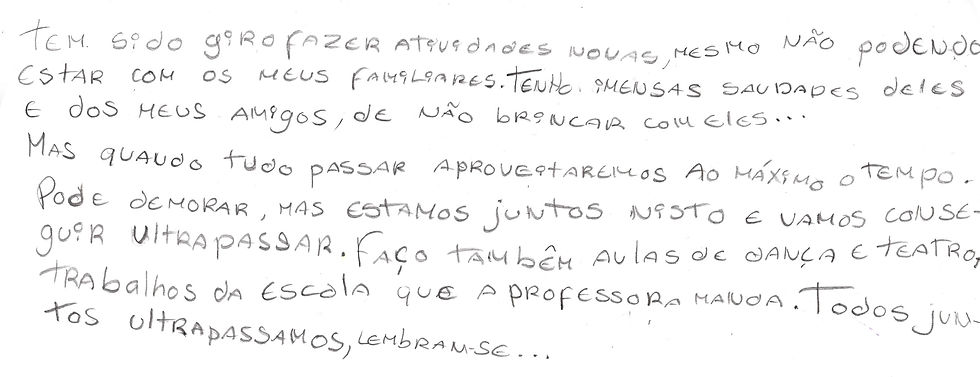 Tem sido giro fazer atividades novas, mesmo não podendo
estar com os meus familiares. Tenho imensas saudades deles
e dos meus amigos, de não brincar com eles...
Mas quando tudo passar aproveitaremos ao máximo o tempo.
Pode demorar, mas estamos juntos nisto e vamos conse-
guir ultrapassar. Faço tambêm aulas de dança e teatro,
trabalhos da escola que a professora manda. Todos jun-
tos ultrapassamos, lembram-se...